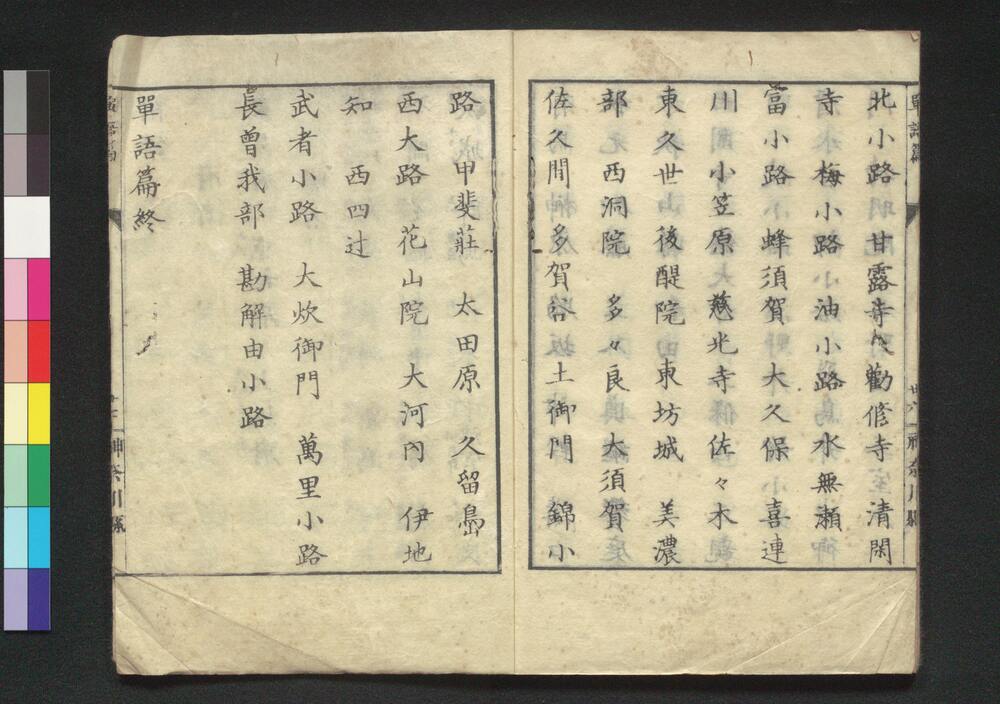 單語篇
北小路 甘露寺 勸修寺 清閑
寺 梅小路 油小路 水無瀬
富小路 蜂須賀 大久保 喜連
川 小笠原 慈光寺 佐々木
東久世 後醍院 東坊城 美濃
部 西洞院 多々良 大須賀
佐久間 多賀谷 土御門 錦小
廿六 神奈川縣
路 甲斐莊 太田原 久留嶋
西大路 花山院 大河內 伊地
知 西四辻
武者小路 大炊御門 萬里小路
長曾我部 勘解由小路
單語篇終
神奈川縣